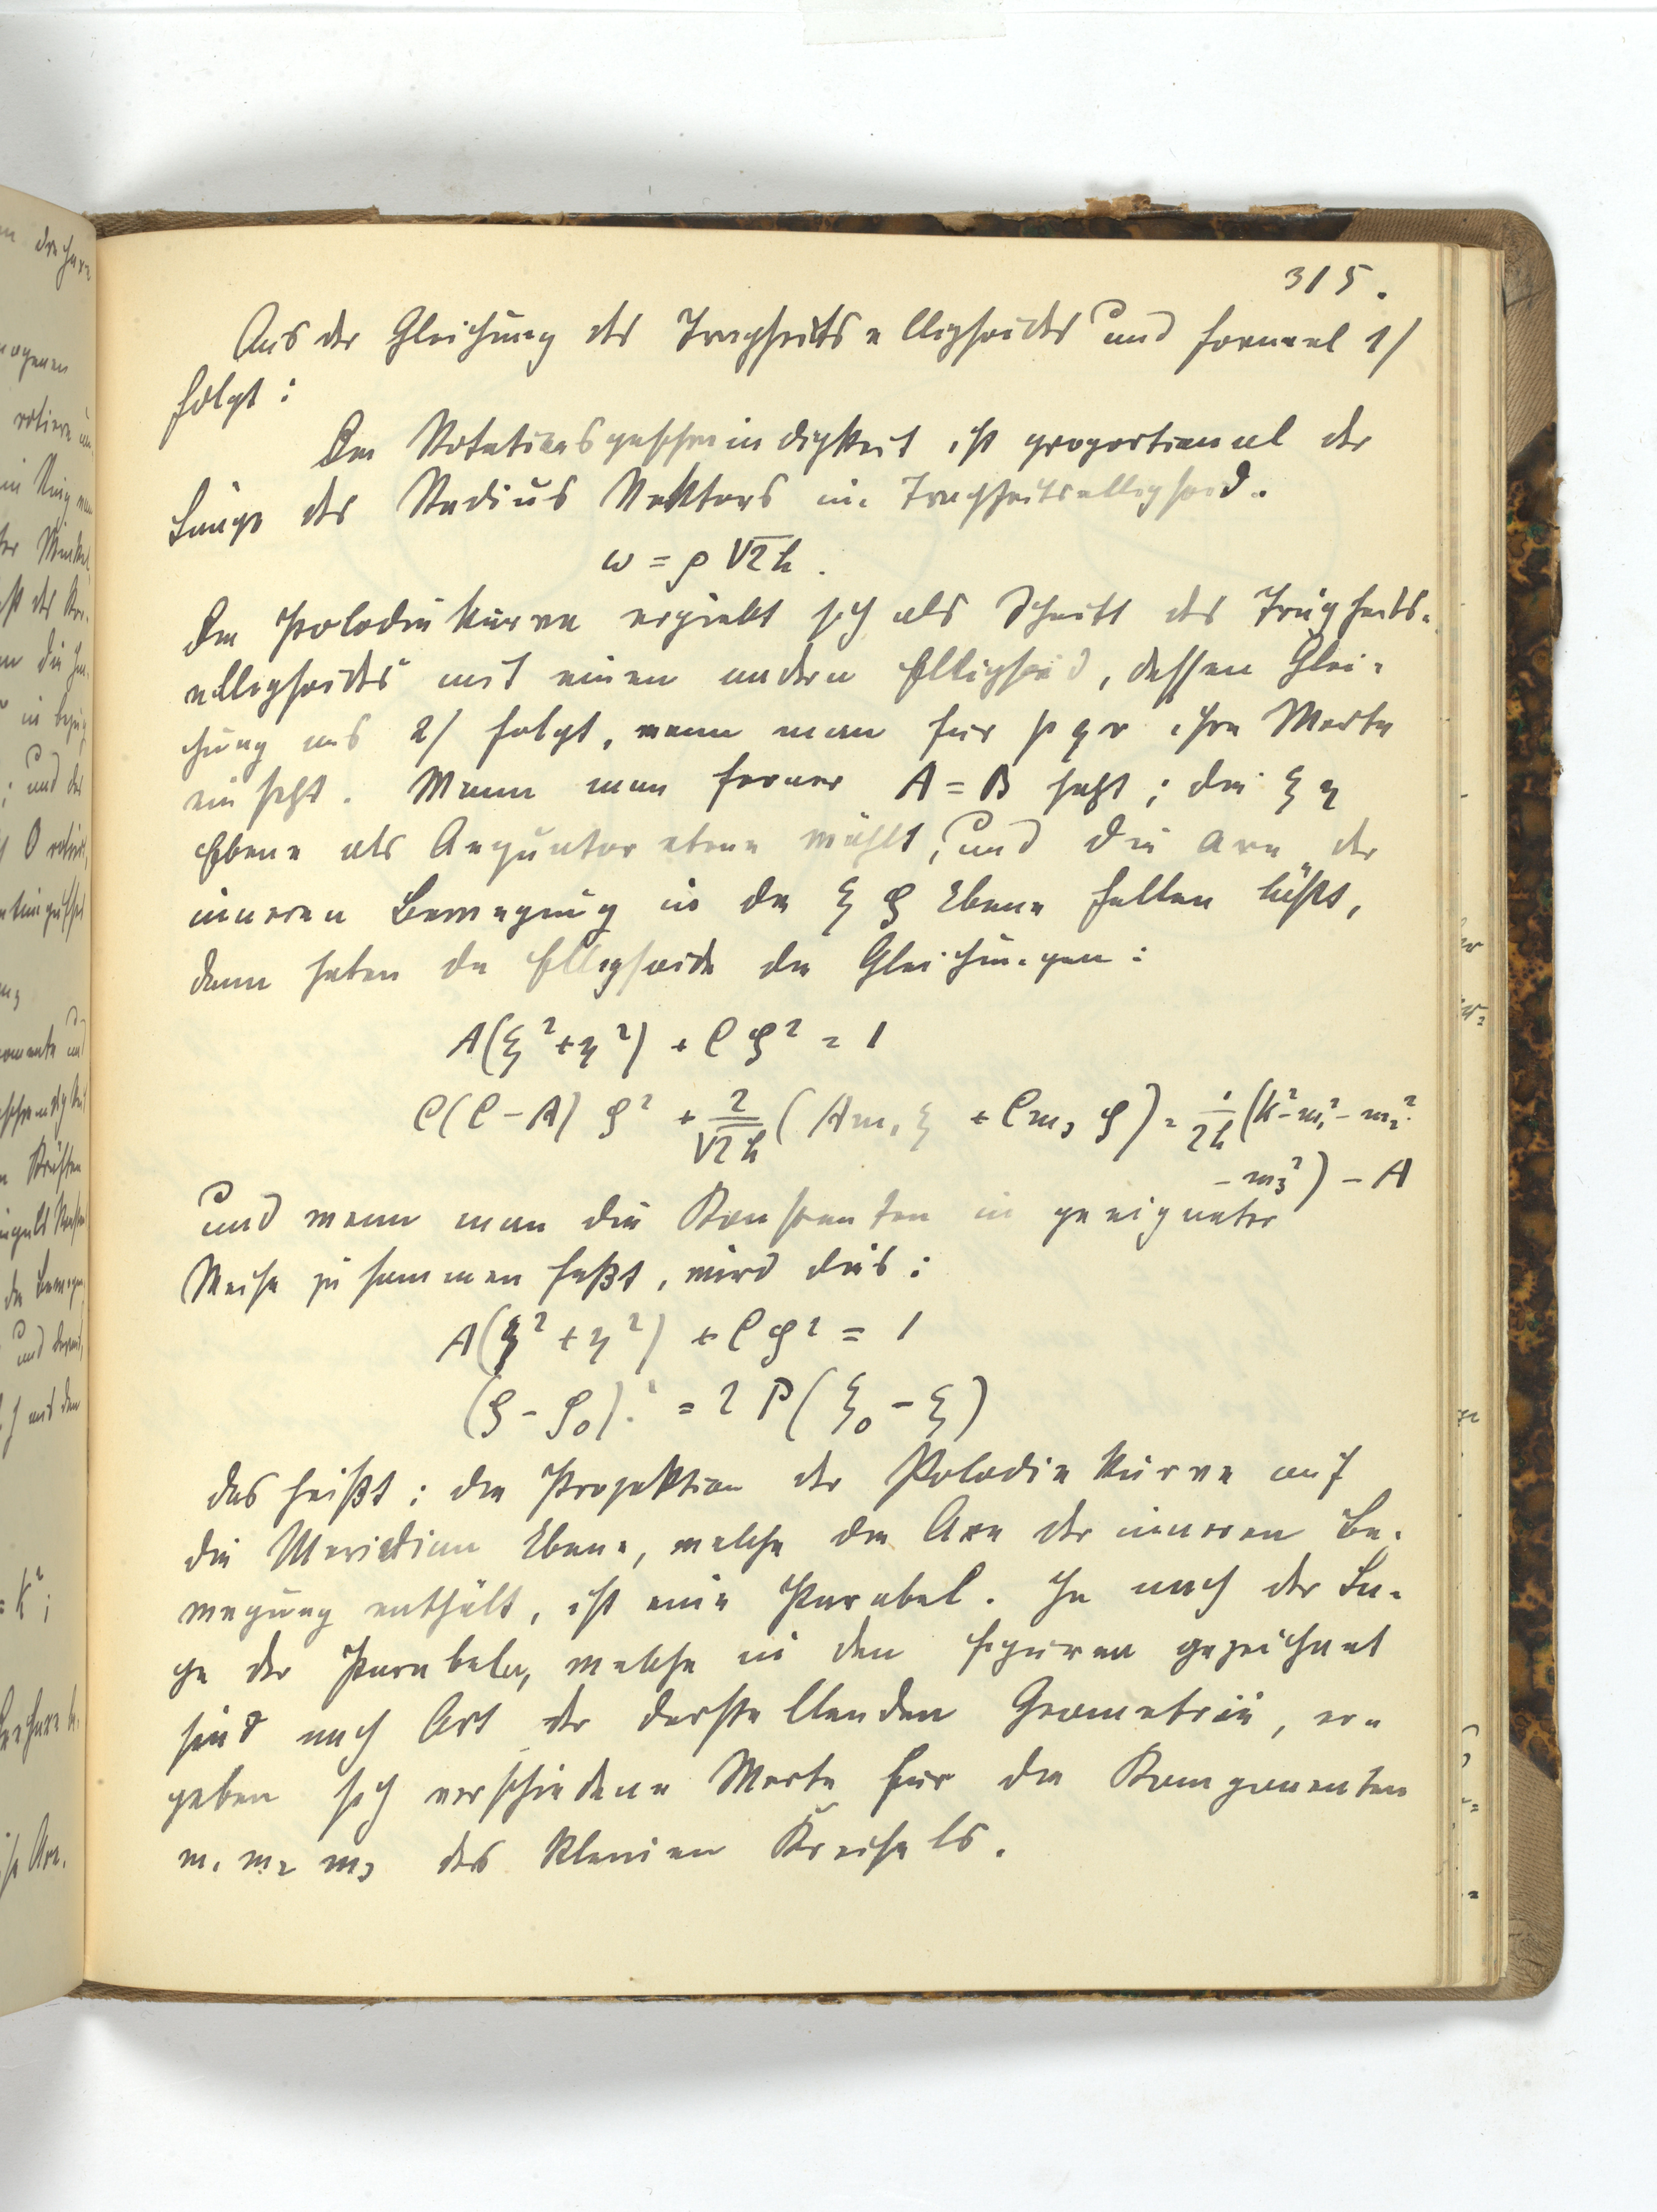 315.
Aus der Gleichung des Trägheitsellipsoides und Formel 1/
folgt:
Die Rotationsgeschwindigkeit ist proportional der
Länge des Radius Vektors im Trägheitsellipsoid.
ω = ρ √2h.
Die Polodiekurve ergiebt sich als Schnitt des Trägheits-
ellipsoides mit einem andern Ellipsoid, dessen Glei-
chung aus 2/ folgt, wenn man für p q r ihre Werte
einsetzt. Wenn man ferner A = B setzt; die ξ η
Ebene als Aequatorebene wählt, und die Axe der
inneren Bewegung in die ξ ζ Ebene fallen läßt,
dann haben die Ellipsoide die Gleichungen:
A(ξ² + η²) + C ζ² = 1
C(C – A) ζ² + 2/√2h (A m₁ ξ + C m₃ ζ) = 1/2h (k² – m₁² – m₂²
– m₃²) – A
und wenn man die Konstanten in geeigneter
Weise zusammen faßt, wird dies:
A(ξ² + η²) + C ζ² = 1
(ζ – ζ₀)² = 2 P(ξ₀ – ξ)
das heißt: die Projektion der Polodiekurve auf
die Meridian Ebene, welche die Axe der inneren Be-
wegung enthält, ist eine Parabel. Je nach der La-
ge der Parabeln, welche in den Figuren gezeichnet
sind nach Art der darstellenden Geometrie, er-
geben sich verschiedene Werte für die Komponenten
m₁ m₂ m₃ des kleinen Kreisels.